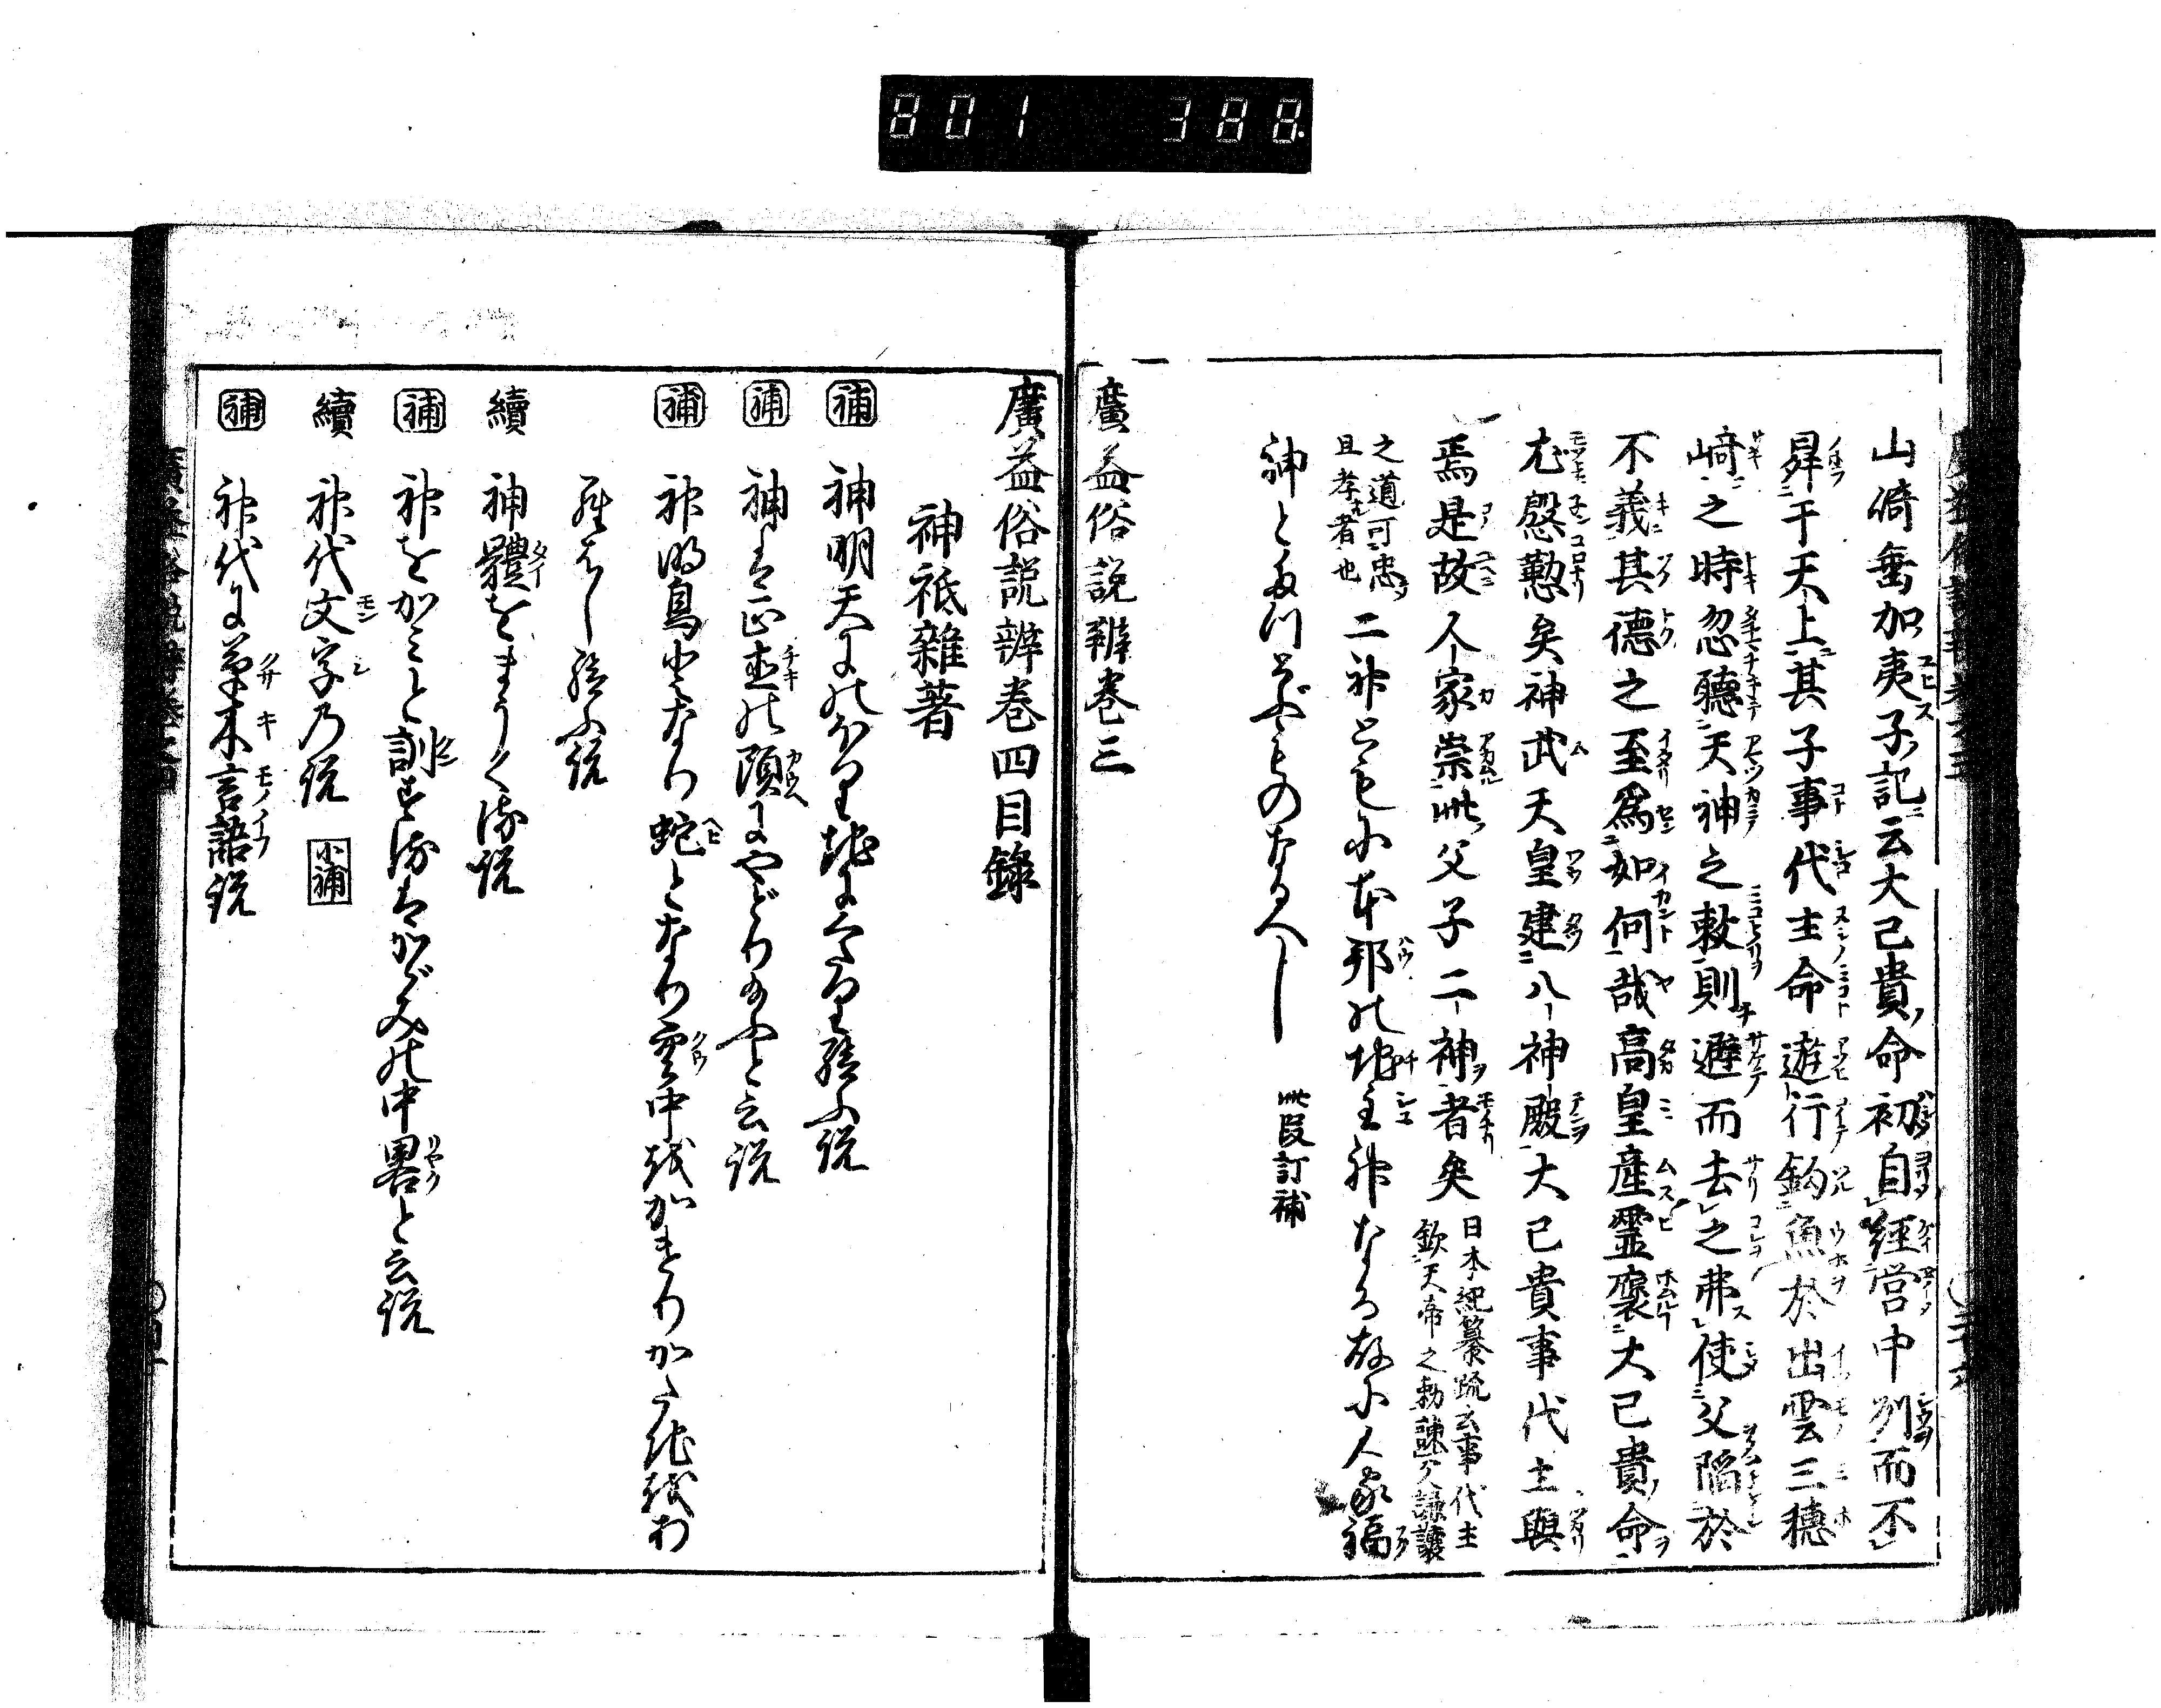 801 388
山崎垂加夷子記云大己貴命初自經営中列而不
昇于天上其子事代主命遊行鈎魚於出雲三穂
﨑之時忽聴天神之敕則避而去之弗使父陥於
不義其德之至為如何哉高皇産霊褒大己貴命
尤慇懃矣神武天皇建八神殿大己貴事代主與
焉是故人家崇此父子二神者矣
日本紀纂疏云事代主
欽天帝之勅諫父謙譲
之道可忠
且孝者也
二神ともに本邦の地主神なる故に人家福
神とあがむものなるべし
此段訂補
廣益俗説辨巻三
廣益俗説辨巻四目録
神祇雜著
補 神明天にのぼり地にくだり給ふ説
補 神は正直の頭にやどり給ふと云説
補 神明鳥となり蛇となり雲中をかけりかたちをわ
座はし給ふ説
續 神體をまうくる説
補 神をかみと訓ずるはかゞみの中畧と云説
續 神代文字乃説 小補
補 神代に草木言語説